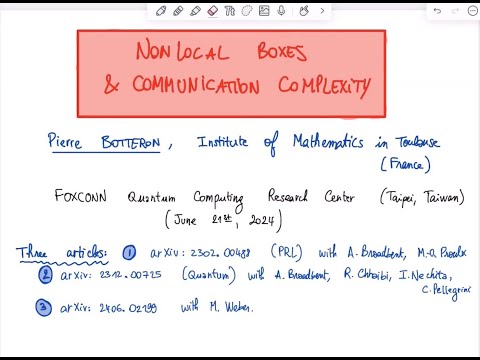 NONLOCAL BOXES
& COMMUNICATION COMPLEXITY
Pierre BOTTERON, Institute of Mathematics in Toulouse
(France)
FOXCONN Quantum Computing Research Center (Taipei, Taiwan)
(June 21st, 2024)
Three articles: 1 arXiv: 2302.00488 (PRL) with A. Broadbent, M.-O. Proulx
2 arXiv: 2312.00725 (Quantum) with A. Broadbent, R. Chhaibi, I. Nechita,
C. Pellegrini
3 arXiv: 2406.02199 with M. Weber.